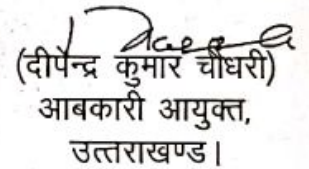 (दीपेन्द्र कुमार चौधरी)
आबकारी आयुक्त,
उत्तराखण्ड।